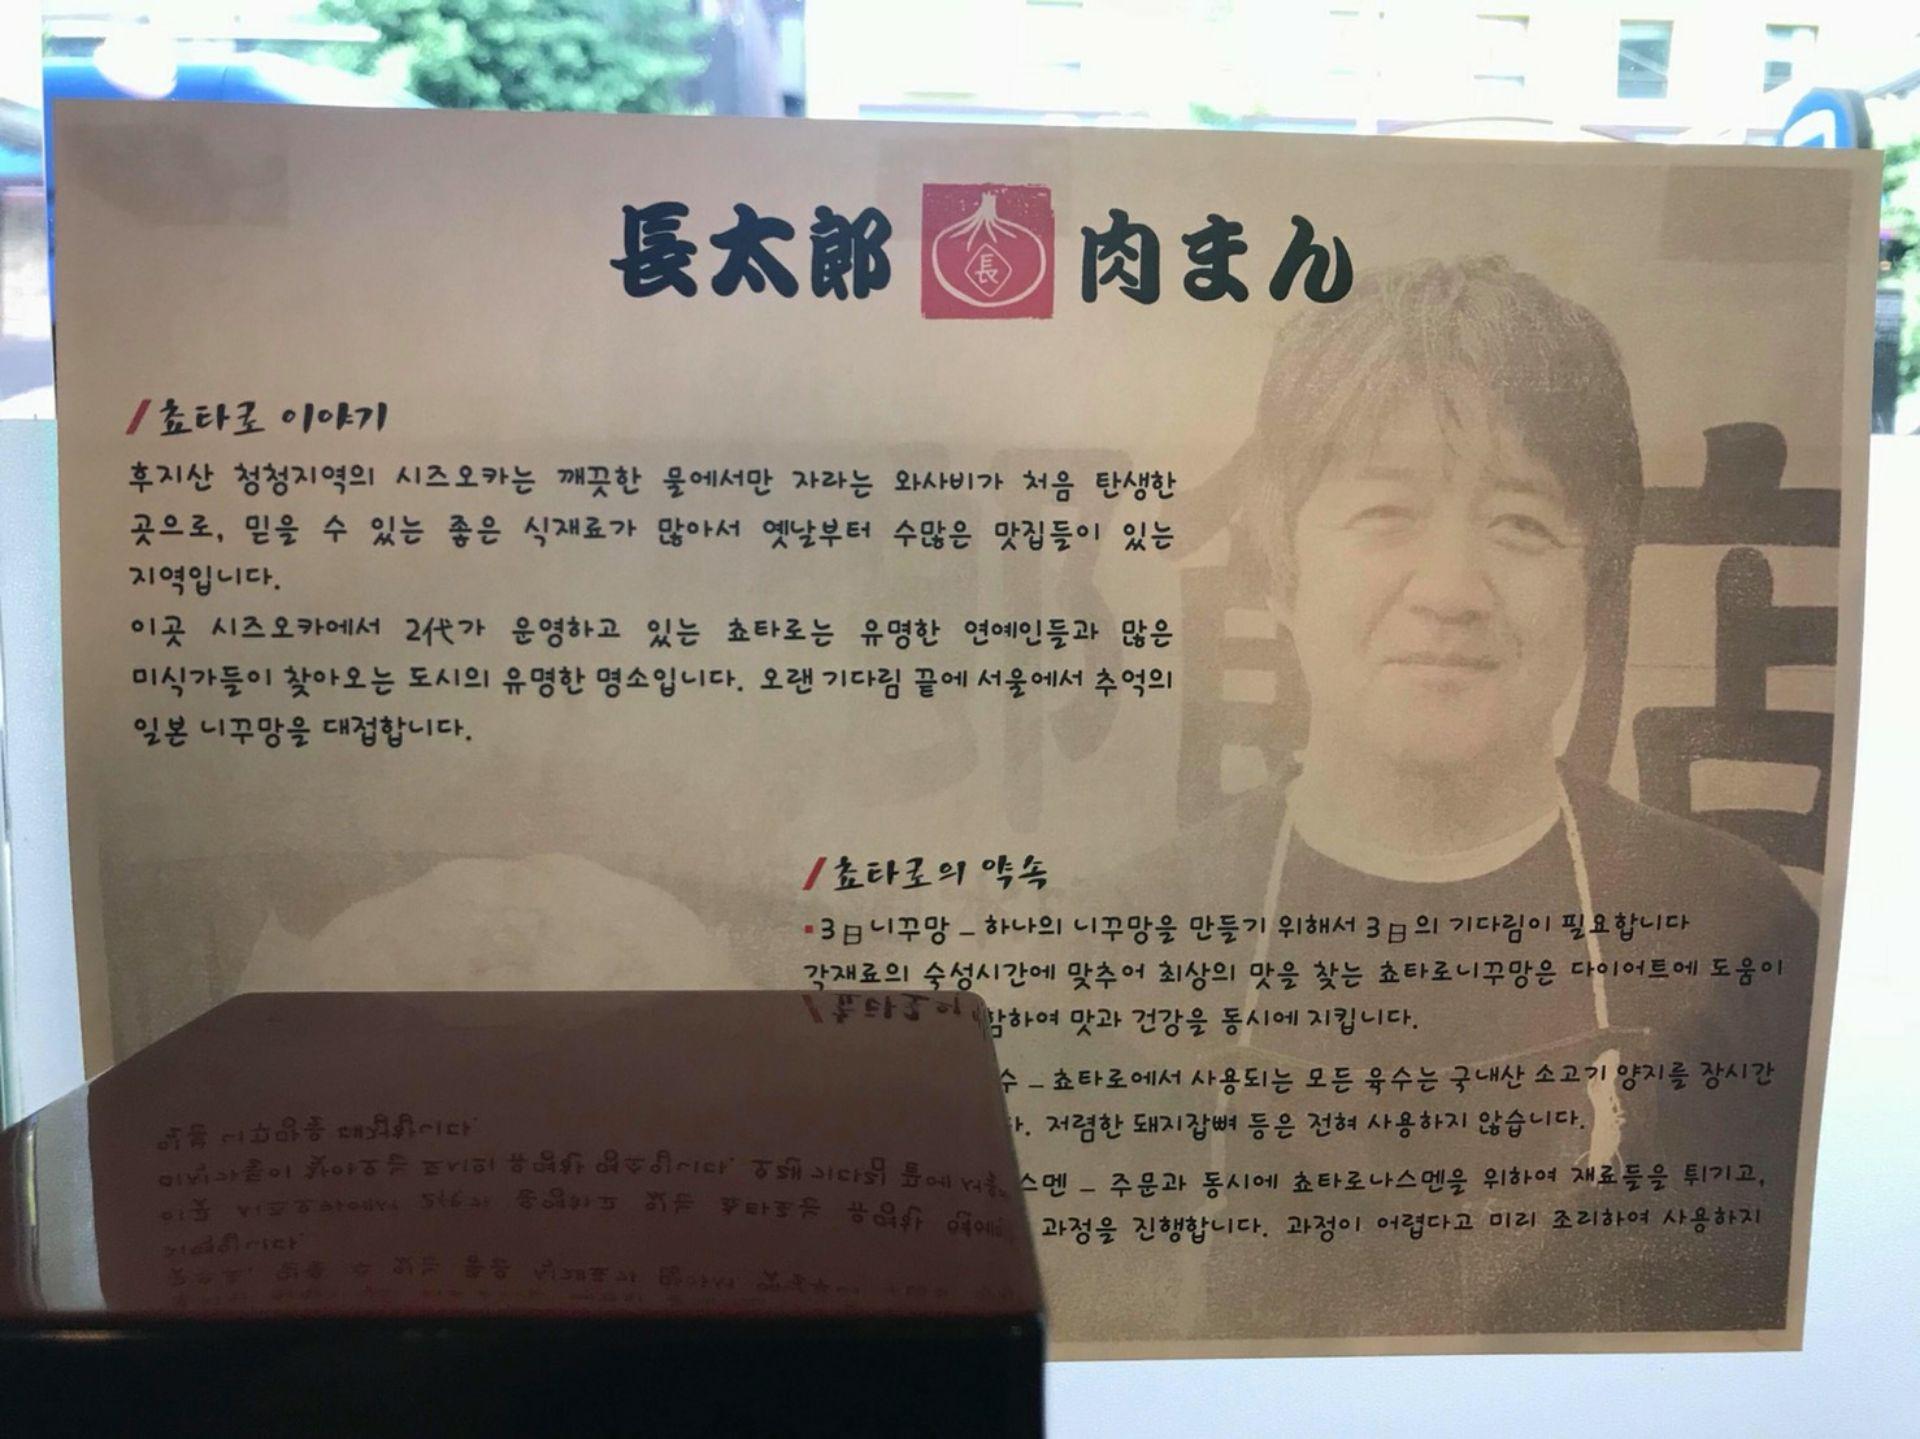 長太郎 長 肉まん
쵸타로 이야기
후지산 청청지역의 시즈오카는 깨끗한 물에서만 자라는 와사비가 처음 탄생한
곳으로, 믿을 수 있는 좋은 식재료가 많아서 옛날부터 수많은 맛집들이 있는
지역입니다.
이곳 시즈오카에서 2代가 운영하고 있는 쵸타로는 유명한 연예인들과 많은
미식가들이 찾아오는 도시의 유명한 명소입니다. 오랜 기다림 끝에 서울에서 추억의
일본 니꾸망을 대접합니다.
쵸타로의 약속
▪3日니꾸망 – 하나의 니꾸망을 만들기 위해서 3日의 기다림이 필요합니다
각재료의 숙성시간에 맞추어 최상의 맛을 찾는 쵸타로니꾸망은 다이어트에 도움이
함하여 맛과 건강을 동시에 지킵니다.
수 – 쵸타로에서 사용되는 모든 육수는 국내산 소고기 양지를 장시간
. 저렴한 돼지잡뼈 등은 전혀 사용하지 않습니다.
스멘 – 주문과 동시에 쵸타로나스멘을 위하여 재료들을 튀기고,
과정을 진행합니다. 과정이 어렵다고 미리 조리하여 사용하지